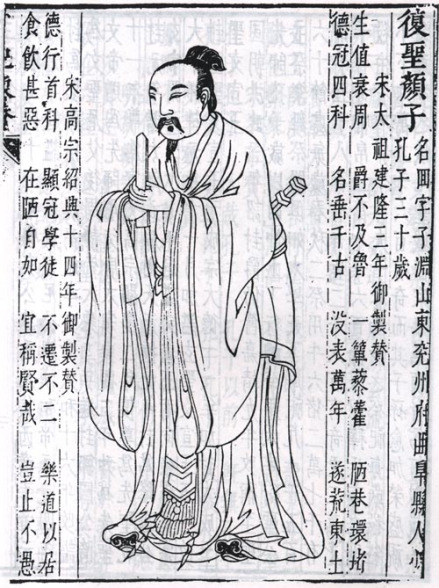 復聖顏子
名囬字子淵山東兗州府曲阜縣人少
孔子三十歲
宋太祖建隆三年御製贊
生值衰周 爵不及魯 一簞藜藿 陋巷環堵
德冠四科 名垂千古 没表萬年 遂荒東土
宋高宗紹興十四年御製贊
德行首科 顯冠學徒 不遷不二 樂道以居
食飲甚惡 在陋自如 宜稱賢哉 豈止不愚